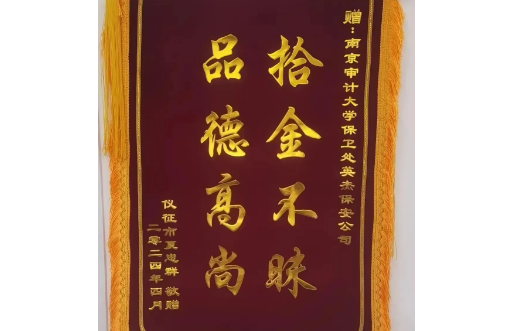 赠：南京审计大学保卫处英杰保安公司
拾金不昧
品德高尚
仪征市夏忠群 敬赠
二零二四年四月